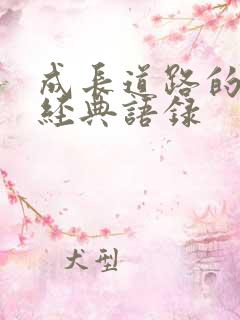 成長道路的
經典語录
犬型